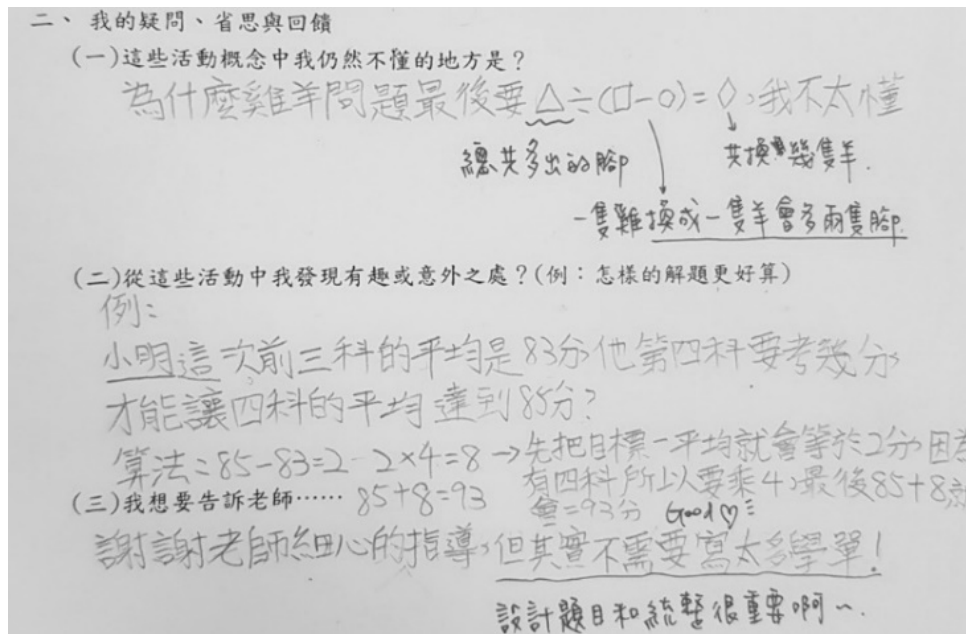 二、 我的疑問、省思與回饋
(一)這些活動概念中我仍然不懂的地方是？
為什麼雞羊問題最後要△÷(□-○)=◇,我不太懂
總共多出的腳
共換幾隻羊.
一隻雞換成一隻羊會多兩隻腳.
(二)從這些活動中我發現有趣或意外之處？(例：怎樣的解題更好算)
例:
小明這次前三科的平均是83分,他第四科要考幾分,
才能讓四科的平均達到85分?
算法:85-83=2 2×4=8→先把目標-平均就會等於2分,因為
有四科所以要乘4,最後85+8就
(三)我想要告訴老師…… 85+8=93
會=93分 Good♡
謝謝老師細心的指導,但其實不需要寫太多學單!
設計題目和統整很重要啊~.